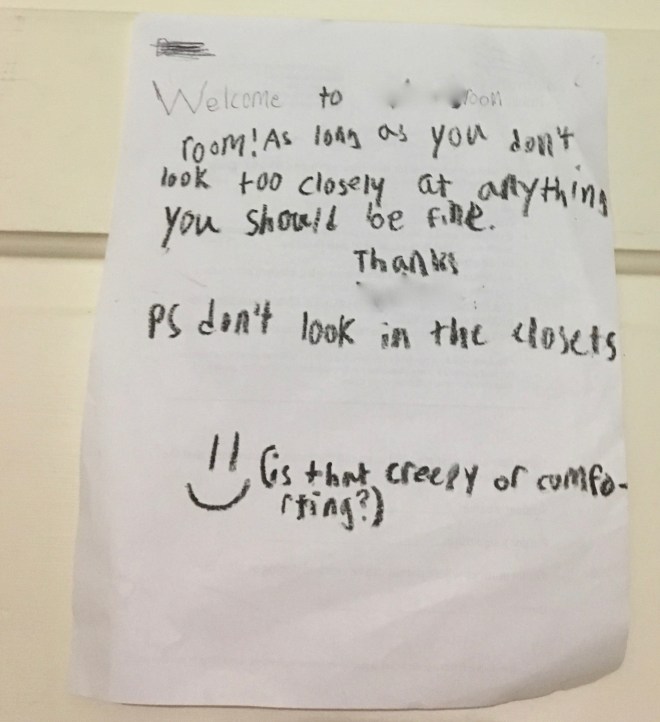 Welcome to
room! As long as you don't
look too closely at anything
you should be fine.
Thanks
PS don't look in the closets
(is that creepy or comfo-
rting?)